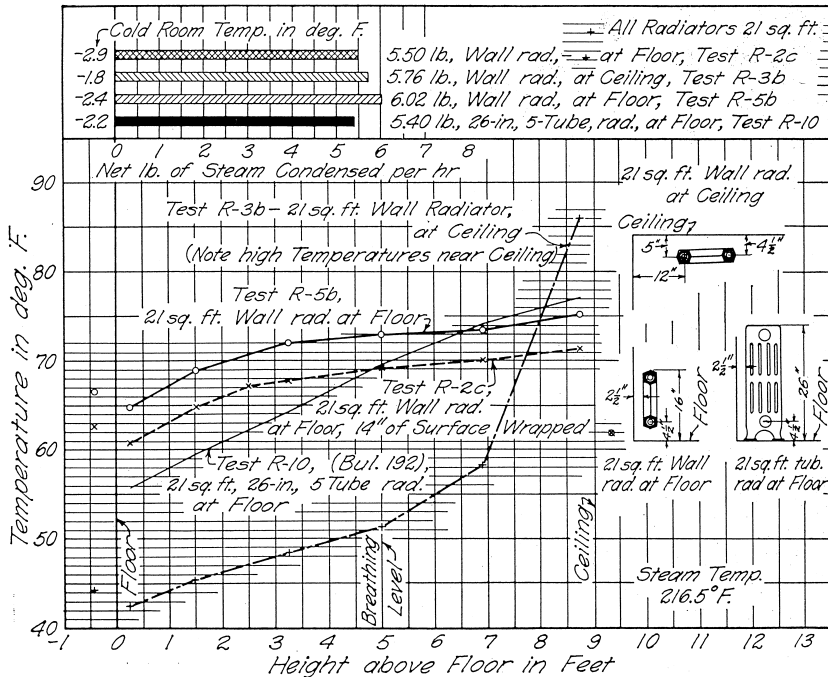 Cold Room Temp. in deg. F.
All Radiators 21 sq. ft.
-2.9
5.50 lb., Wall rad., at Floor, Test R-2c
-1.8
5.76 lb., Wall rad., at Ceiling, Test R-3b
-2.4
6.02 lb., Wall rad., at Floor, Test R-5b
-2.2
5.40 lb., 26-in., 5-Tube, rad., at Floor, Test R-10
0 1 2 3 4 5 6 7 8
Net lb. of Steam Condensed per hr.
90
80
70
60
50
40
Temperature in deg. F.
Test R-3b - 21 sq. ft. Wall Radiator,
at Ceiling
(Note high Temperatures near Ceiling)
Test R-5b,
21 sq. ft. Wall rad. at Floor
Test R-2c,
21 sq. ft. Wall rad.
at Floor, 14" of Surface Wrapped
Test R-10, (Bul. 192),
21 sq. ft., 26-in., 5 Tube rad.
at Floor
Floor
Breathing
Level
Ceiling
21 sq. ft. Wall rad.
at Ceiling
Ceiling
5"
4 1/2"
12"
2 1/2"
16"
4 1/2"
Floor
21 sq. ft. Wall
rad. at Floor
2 1/2"
26"
4 1/2"
Floor
21 sq. ft. tub.
rad. at Floor
Steam Temp.
216.5°F.
-1 0 1 2 3 4 5 6 7 8 9 10 11 12 13
Height above Floor in Feet